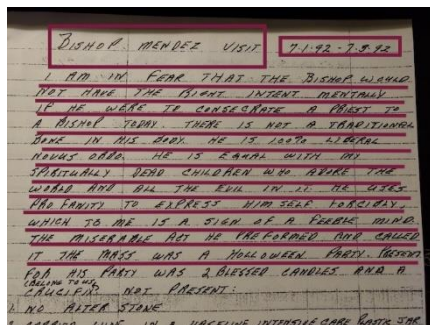 BISHOP MENDEZ VISIT 7-1-92 - 7-3-92
I AM IN FEAR THAT THE BISHOP WOULD
NOT HAVE THE RIGHT INTENT MENTALLY
IF HE WERE TO CONSECRATE A PRIEST TO
A BISHOP TODAY. THERE IS NOT A TRADITIONAL
BONE IN HIS BODY. HE IS 100% LIBERAL
NOVUS ORDO. HE IS EQUAL WITH MY
SPIRITUALLY DEAD CHILDREN WHO ADORE THE
WORLD AND ALL THE EVIL IN IT. HE USES
PROFANITY TO EXPRESS HIMSELF FORCIBLY,
WHICH TO ME IS A SIGN OF A FEEBLE MIND.
THE MISERABLE ACT HE PREFORMED AND CALLED
IT THE MASS WAS A HOLLOWEEN PARTY. PRESENT
FOR HIS PARTY WAS 2 BLESSED CANDLES AND A
(BELONG TO US)
CRUCIFIX. NOT PRESENT:
1. NO ALTER STONE
WINE IN A VASELINE INTENSIVE CARE PLASTIC JAR